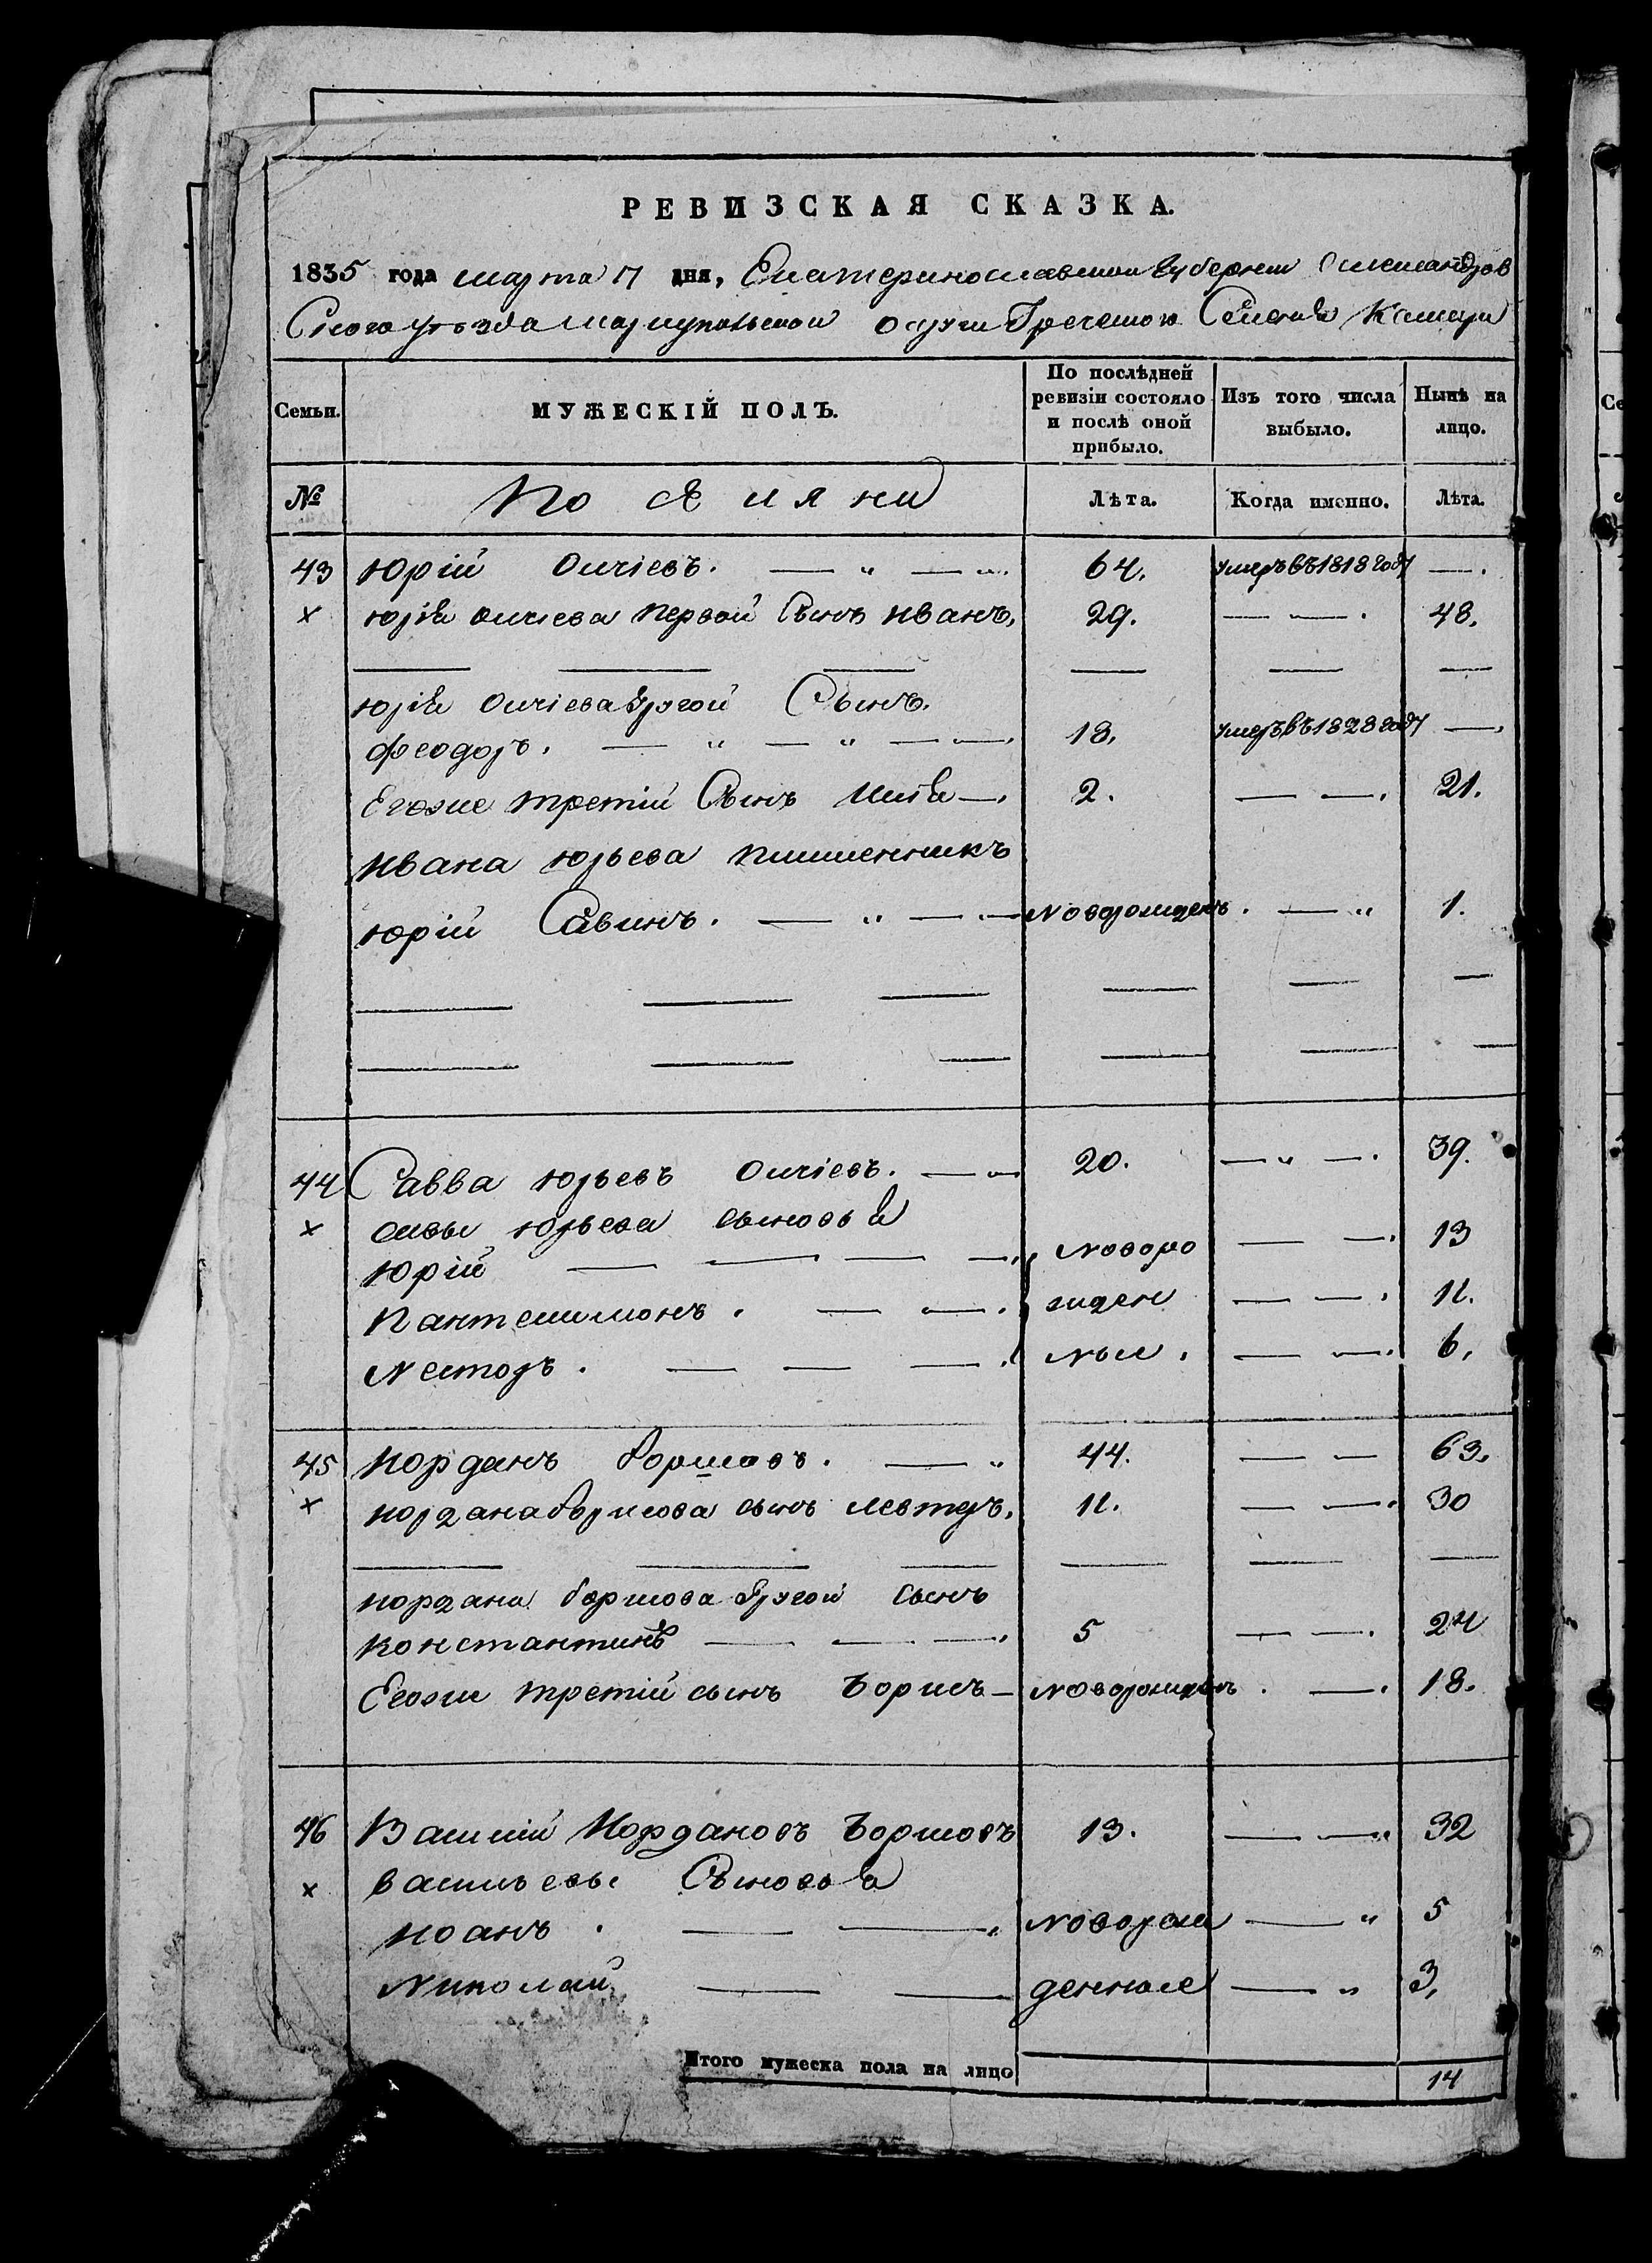 РЕВИЗСКАЯ СКАЗКА.
1835 года марта 17 дня, Екатеринославской губернии Александров
Скаго уезда Мариупольской округи Греческаго Селенія Камары
Семьи. МУЖЕСКІЙ ПОЛЪ. По послѣдней ревизіи состояло и послѣ оной прибыло. Изъ того числа выбыло. Нынѣ на лицо.
№ Поселяни Лѣта. Когда именно. Лѣта.
43 Юрій 64. умеръ въ 1818 году — .
× юрія первой Сынъ иванъ, 29. — — . 48.
юрія другой Сынъ.
феодоръ. — " — " — — . 18. умеръ въ 1828 году — .
Егоже третій Сынъ Илія — . 2. — — . 21.
ивана юрьева племенникъ
юрій Савинъ. — " — — новорожденъ. — " 1.
44 Савва юрьевъ 20. — " — . 39.
× савы юрьева сыновья
юрій — — — — новоро — — . 13
пантелимонъ. — — . жден — — . 11.
несторъ. — — — . ные. — — . 6.
45 иорданъ борисовъ. — " 44. — — 63.
× иордана борисова сынъ левтеръ. 11. — — . 30
иордана борисова другой сынъ
константинъ — — — . 5 — — . 24
Егоже третій сынъ Борисъ — новорожденъ. — . 18.
46 Василій Иордановъ Борисовъ 13. — — " 32
× васильевы Сыновья
иоанъ. — — " новорож — " 5
Николай — — денные — " 3.
Итого мужеска пола на лицо 14